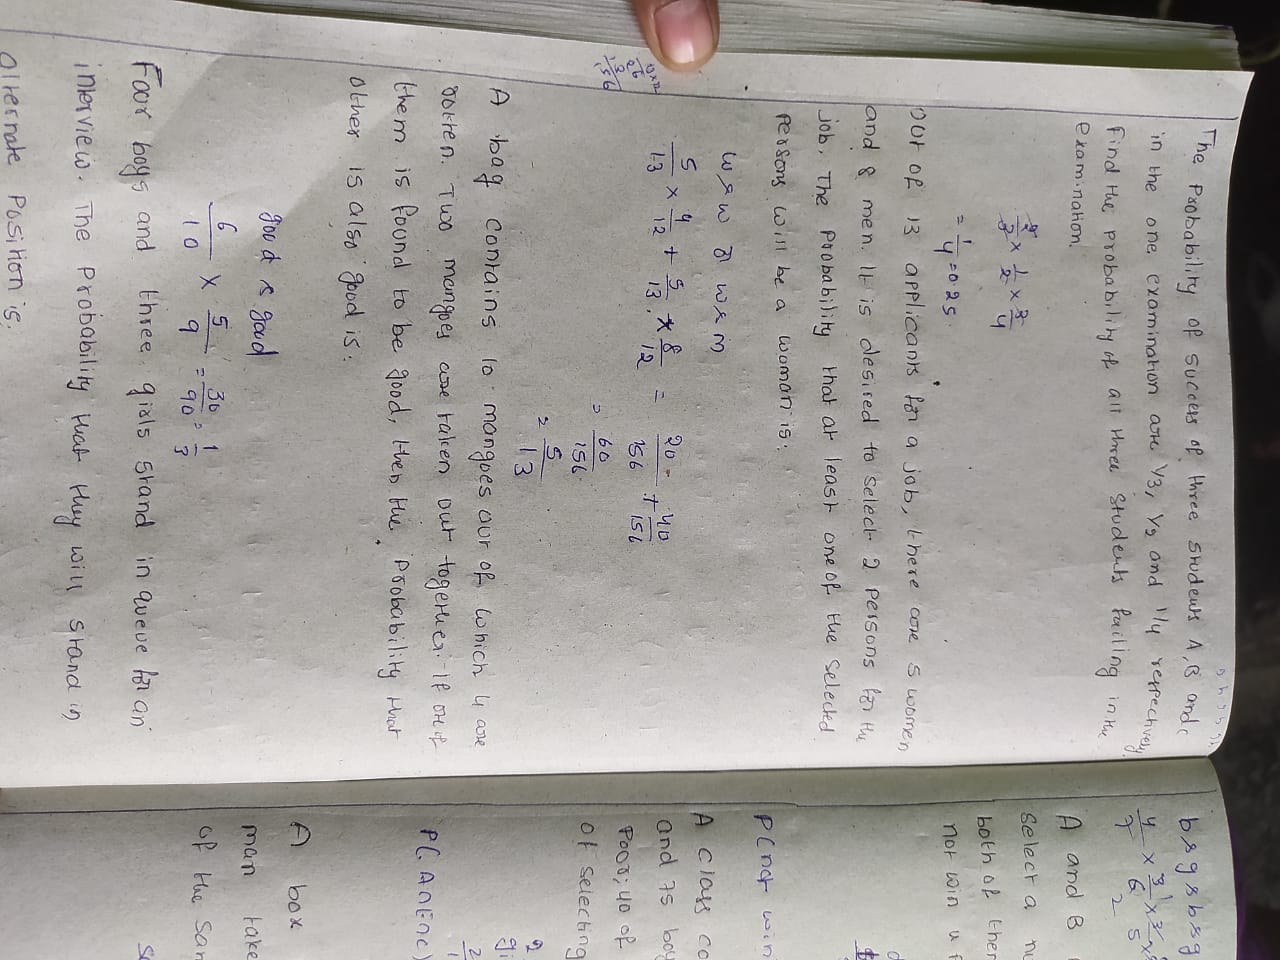 The probability of success of three students A, B and c
in the one examination are 1/3, 1/2 and 1/4 respectively.
Find the probability of all three students failing in the
examination.
2/3 × 1/2 × 3/4
= 1/4 = 0.25
out of 13 applicants for a job, there are 5 women
and 8 men. It is desired to select 2 persons for the
job. The probability that at least one of the selected
persons will be a woman is:
w & w or w × m
5/13 × 4/12 + 5/13 × 8/12 = 20/156 + 40/156
= 60/156
= 5/13
A bag contains 10 mangoes out of which 4 are
rotten. Two mangoes are taken out together. If one of
them is found to be good, then the probability that
other is also good is:
good & good
6/10 × 5/9 = 30/90 = 1/3
Four boys and three girls stand in queue for an
interview. The probability that they will stand in
alternate position is:
b g b g
A and B
select a
both of
not win
P(not win
A class
and 75 boy
Poor, 40 of
of selecting
A box
man take
of the